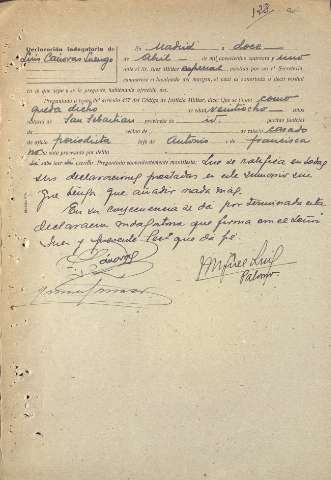 123
Declaración indagatoria de
Luis Canovas Luengo
En Madrid, a doce
de Abril de mil novecientos cuarenta y uno
ante el Sr. Juez Militar especial, asistido por mí el Secretario,
compareció el localizado del margen, al cual se le exhortó a decir verdad
en lo que sepa y se le pregunte, habiéndolo ofrecido, etc.
Preguntado a tenor del artículo 457 del Código de Justicia Militar, dice: que se llama como
queda dicho de edad veintiocho años
natural de San Sebastian provincia de id. partido judicial
de vecino de de estado casado
de oficio periodista hijo de Antonio y de Francisca
no procesado por delito
sabe leer escribir. Preguntado convenientemente manifiesta: Que se ratifica en todas
sus declaraciones prestadas en este sumario sin
que tenga que añadir nada mas.
En su consecuencia se da por terminada esta
declaracion indagatoria que firma con el Señor
Juez y presente Secrt que doy fé.
Cánovas
Palomo